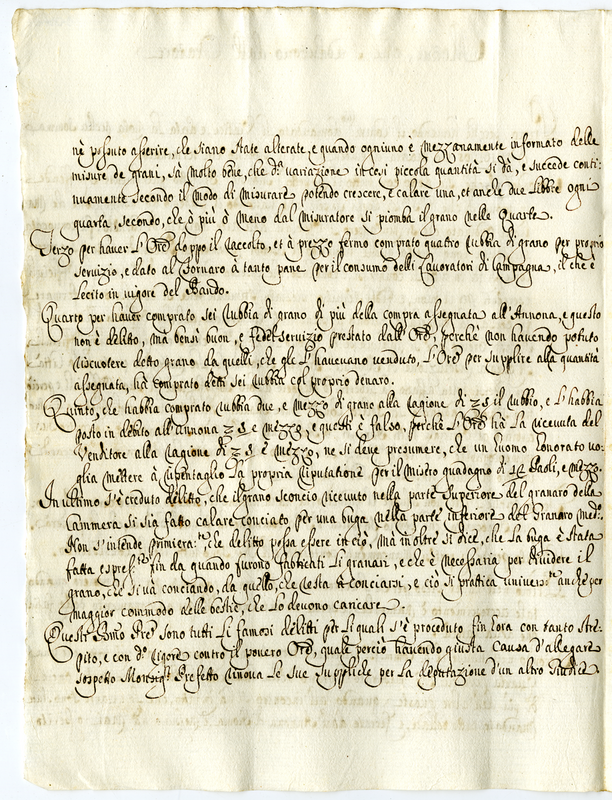 nè possuto asserire, che siano state alterate, e quando ogniuno è mezzanamente informato delle
misure de grani, sà molto bene, che d.ª variazione in così piccola quantità si dà, e succede conti=
nuamente secondo il modo di misurare potendo crescere, e calare una, et anche due libbre ogni
quarta, secondo, che ò più ò meno dal Misuratore si piomba il grano nelle Quarte.
Terzo per haver l'Ore doppo il raccolto, et à prezzo fermo comprato quattro rubbia di grano per proprio
servizio, e dato al Fornaro à tanto pane per il consumo delli Lavoratori di Campagna, il che è
lecito in vigore del Bando.
Quarto per haver comprato sei rubbia di grano di più della compra assegnata all'Annona, e questo
non è delitto, mà bensì buon, e fedel servizio prestato dall'Ore, perchè non havendo potuto
riscuotere detto grano da quelli, che gle l'havevano venduto, l'Ore per supplire alla quantità
assegnata, hà comprato detti sei rubbia col proprio denaro.
Quinto, che habbia comprato rubbia due, e mezzo di grano alla ragione di il rubbio, e l'habbia
posto in debito all'Annona e mezzo, e questo è falso, perchè l'Ore hà la ricevuta del
Venditore alla ragione di e mezzo, ne si deve presumere, che un huomo honorato vo=
glia mettere à ripentaglio la propria riputazione per il misero guadagno di Paoli, e mezzo.
In ultimo s'è creduto delitto, che il grano sconcio ricevuto nella parte superiore del granaro della
Cammera si sia fatto calare conciato per una buga nella parte inferiore del Granaro med.º
Non s'intende primiera:te, che delitto possa essere in ciò, mà in oltre si dice, che la buga è stata
fatta espres:te fin da quando furono fabricati li granari, e che è necessaria per dividere il
grano, che si và conciando, da quello, che resta à conciarsi, e ciò si prattica univers:te anche per
maggior commodo delle bestie, che lo devono caricare.
Questi sono tutti li famosi delitti per li quali s'è proceduto fin hora con tanto stre=
pito, e con d.º rigore contro il povero Ore, quale perciò havendo giusta causa d'allegare
sospetto Monsig.r Prefetto rinova le sue suppliche per la deputazione d'un altro Giudice.